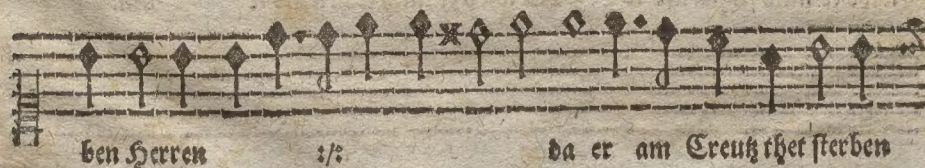 ben Herren :/: da er am Creutz thet sterben